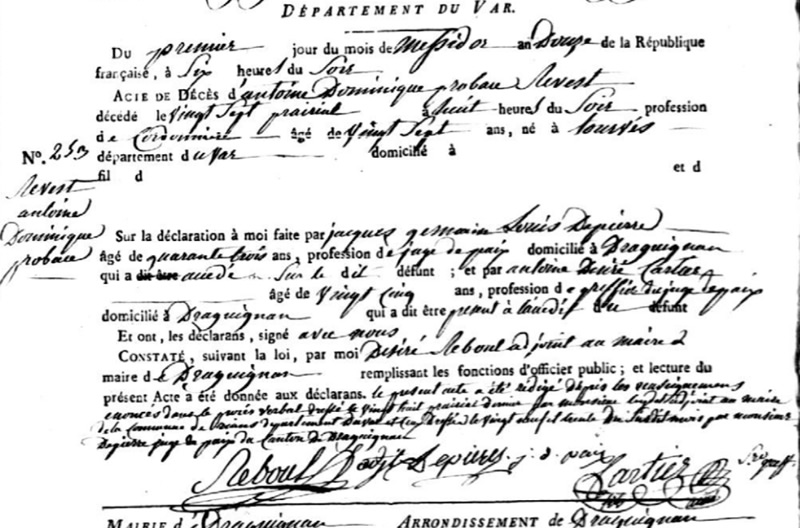 DÉPARTEMENT DU VAR.
Du premier jour du mois de Messidor an Douze de la République
française, à Six heures du Soir
ACTE DE DÉCÈS d'antoine Dominique probace Revest
décédé le Vingt Sept prairial à huit heures du Soir profession
de Cordonnier âgé de Vingt Sept ans, né à tourvès
département du Var domicilié à
fil d et d
N°. 253
Revest
antoine
Dominique
probace
Sur la déclaration à moi faite par jacques germain Louis Depierre
âgé de quarante trois ans, profession de juge de paix domicilié à Draguignan
qui a dit être sur le dit défunt ; et par antoine Désiré Cartier
âgé de Vingt Cinq ans, profession de greffier du juge de paix
domicilié à Draguignan qui a dit être présent à du défunt
Et ont, les déclarans, signé avec nous
CONSTATÉ, suivant la loi, par moi Désiré Reboul adjoint au maire
maire de Draguignan remplissant les fonctions d'officier public ; et lecture du
présent Acte a été donnée aux déclarans. le présent acte a été rédigé depuis les renseignemens
énoncés dans le procès verbal dressé le Vingt huit prairial dernier par monsieur adjoint au maire
de la Commune de département du Var et dressé le Vingt neuf et trente du mois par monsieur
Depierre juge de paix du Canton de Draguignan
Reboul adjt Depierre j. d. paix Cartier
greff.
MAIRIE d Draguignan ARRONDISSEMENT de Draguignan